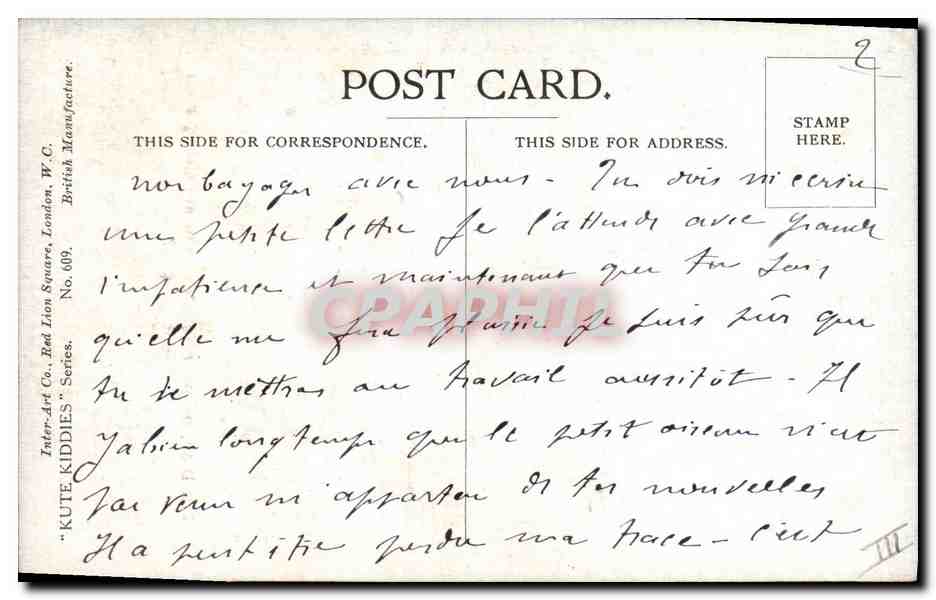 2
POST CARD.
THIS SIDE FOR CORRESPONDENCE.
THIS SIDE FOR ADDRESS.
STAMP
HERE.
Inter-Art Co., Red Lion Square, London, W.C.
British Manufacture.
"KUTE KIDDIES" Series. No. 609.
nos bagages avec nous - Tu dois m'ecrire
une petite lettre Je l'attends avec grande
impatience et maintenant que tu sais
qu'elle me fera plaisir je suis sûr que
tu te mettras au travail aussitôt - Il
y a bien longtemps que le petit oiseau n'est
pas venu m'apporter de tes nouvelles
Il a peut être perdu ma trace - C'est
III
CPARHTI